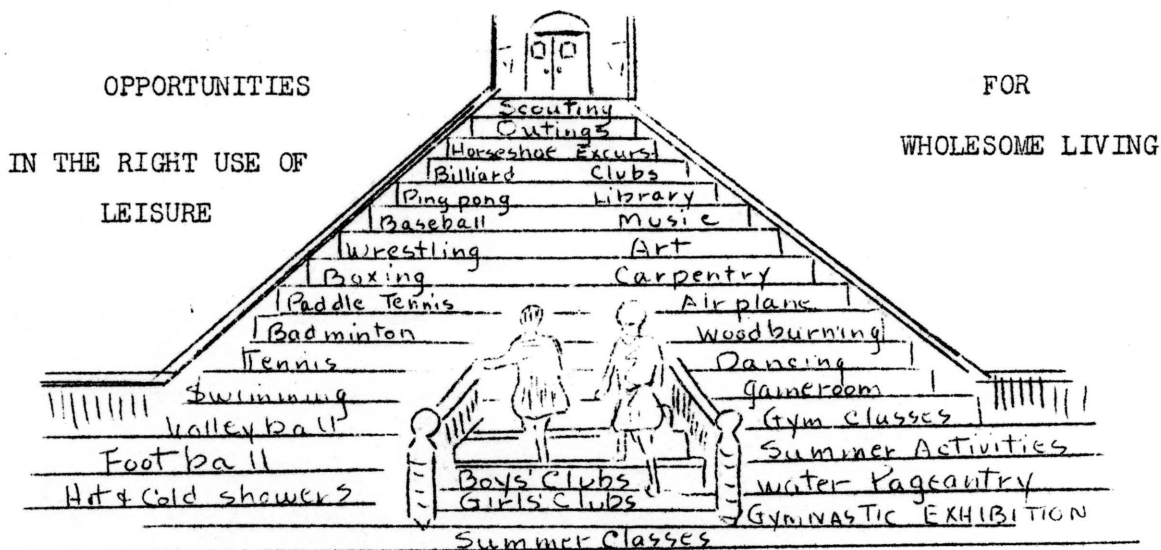 OPPORTUNITIES
IN THE RIGHT USE OF
LEISURE
FOR
WHOLESOME LIVING
Scouting
Outings
Horseshoe Excurs
Billiard Clubs
Pingpong Library
Baseball Music
Wrestling Art
Boxing Carpentry
Paddle Tennis Airplane
Badminton Woodburning
Tennis Dancing
Swimming gameroom
Volleyball Gym Classes
Football Summer Activities
Hot & Cold showers Boys' Clubs water Pageantry
Girls' Clubs GYMNASTIC EXHIBITION
Summer Classes